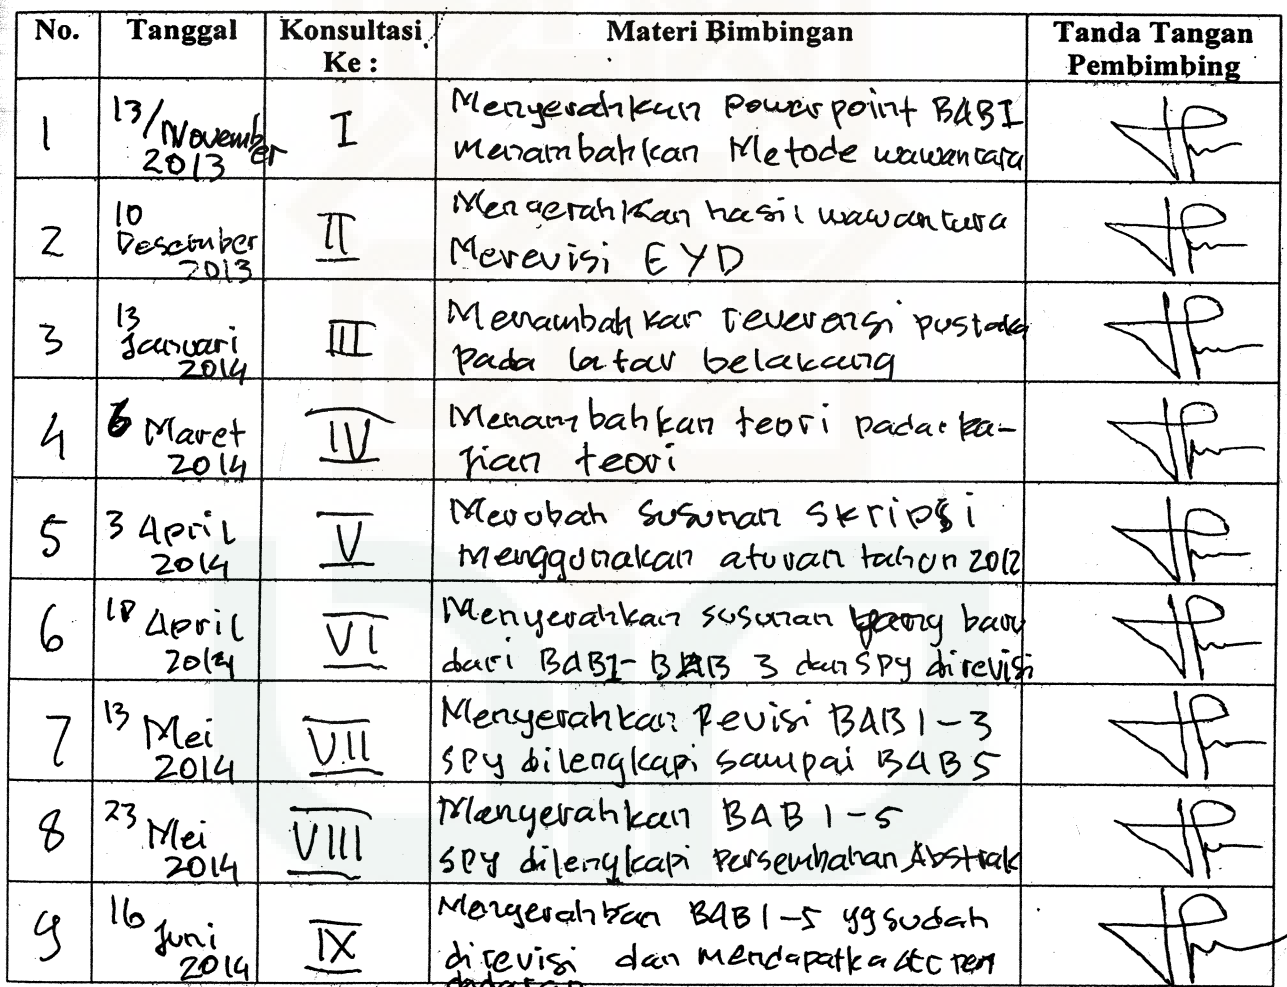 No. Tanggal Konsultasi Ke : Materi Bimbingan Tanda Tangan Pembimbing
1 13/November 2013 I Menyerahkan Powerpoint BAB I
menambahkan Metode wawancara
2 10 Desember 2013 II Menyerahkan hasil wawancara
Merevisi EYD
3 13 Januari 2014 III Menambahkan reverensi pustaka
pada latar belakang
4 6 Maret 2014 IV Menambahkan teori pada ka-
jian teori
5 3 April 2014 V Merobah susunan skripsi
menggunakan aturan tahun 2012
6 18 April 2014 VI Menyerahkan susunan yang baru
dari BAB1-BAB 3 dan spy direvisi
7 13 Mei 2014 VII Menyerahkan Revisi BAB 1-3
spy dilengkapi sampai BAB 5
8 23 Mei 2014 VIII Menyerahkan BAB 1-5
spy dilengkapi Persembahan, Abstrak
9 16 Juni 2014 IX Menyerahkan BAB 1-5 yg sudah
direvisi dan mendapatka acc pen
dadaran